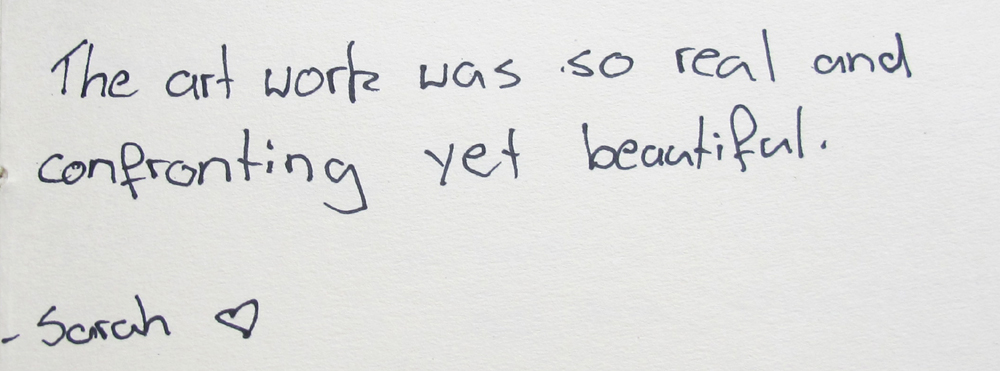 The art work was so real and
confronting yet beautiful.
- Sarah ♡